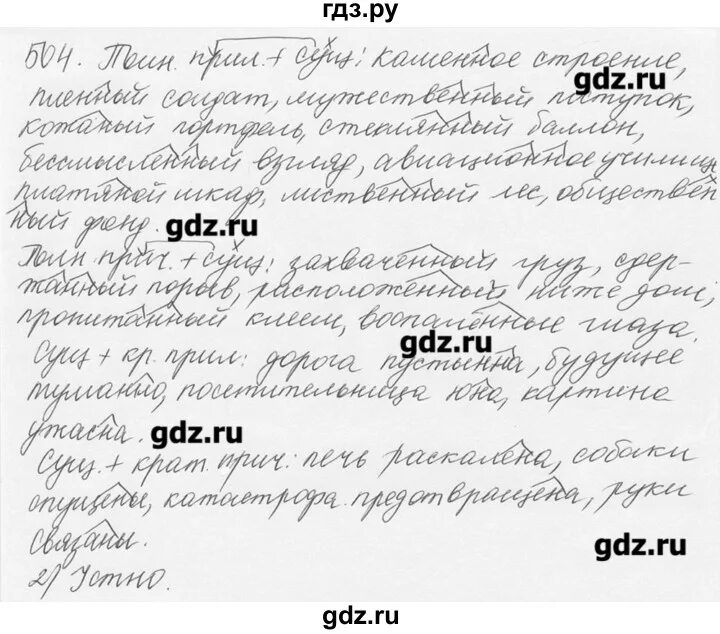 гдз.ру
504. Полн. прил. + сущ: каменное строение,
gdz.ru
пленный солдат, мужественный поступок,
кожаный портфель, стеклянный баллон,
бессмысленный взгляд, авиационное училищ
платяной шкаф, лиственный лес, обществен
ный фонд.
gdz.ru
Полн. прич. + сущ: захваченный груз, сдер-
жанный порыв, расположенный ниже дом,
пропитанный клеем, воспаленные глаза.
gdz.ru
Сущ + кр. прил: дорога пустынна, будущее
туманно, посетительница юна, картина
ужасна.
gdz.ru
Сущ. + крат. прич: печь раскалена, собаки
опущены, катастрофа предотвращена, руки
связаны.
gdz.ru
2) Устно.
gdz.ru